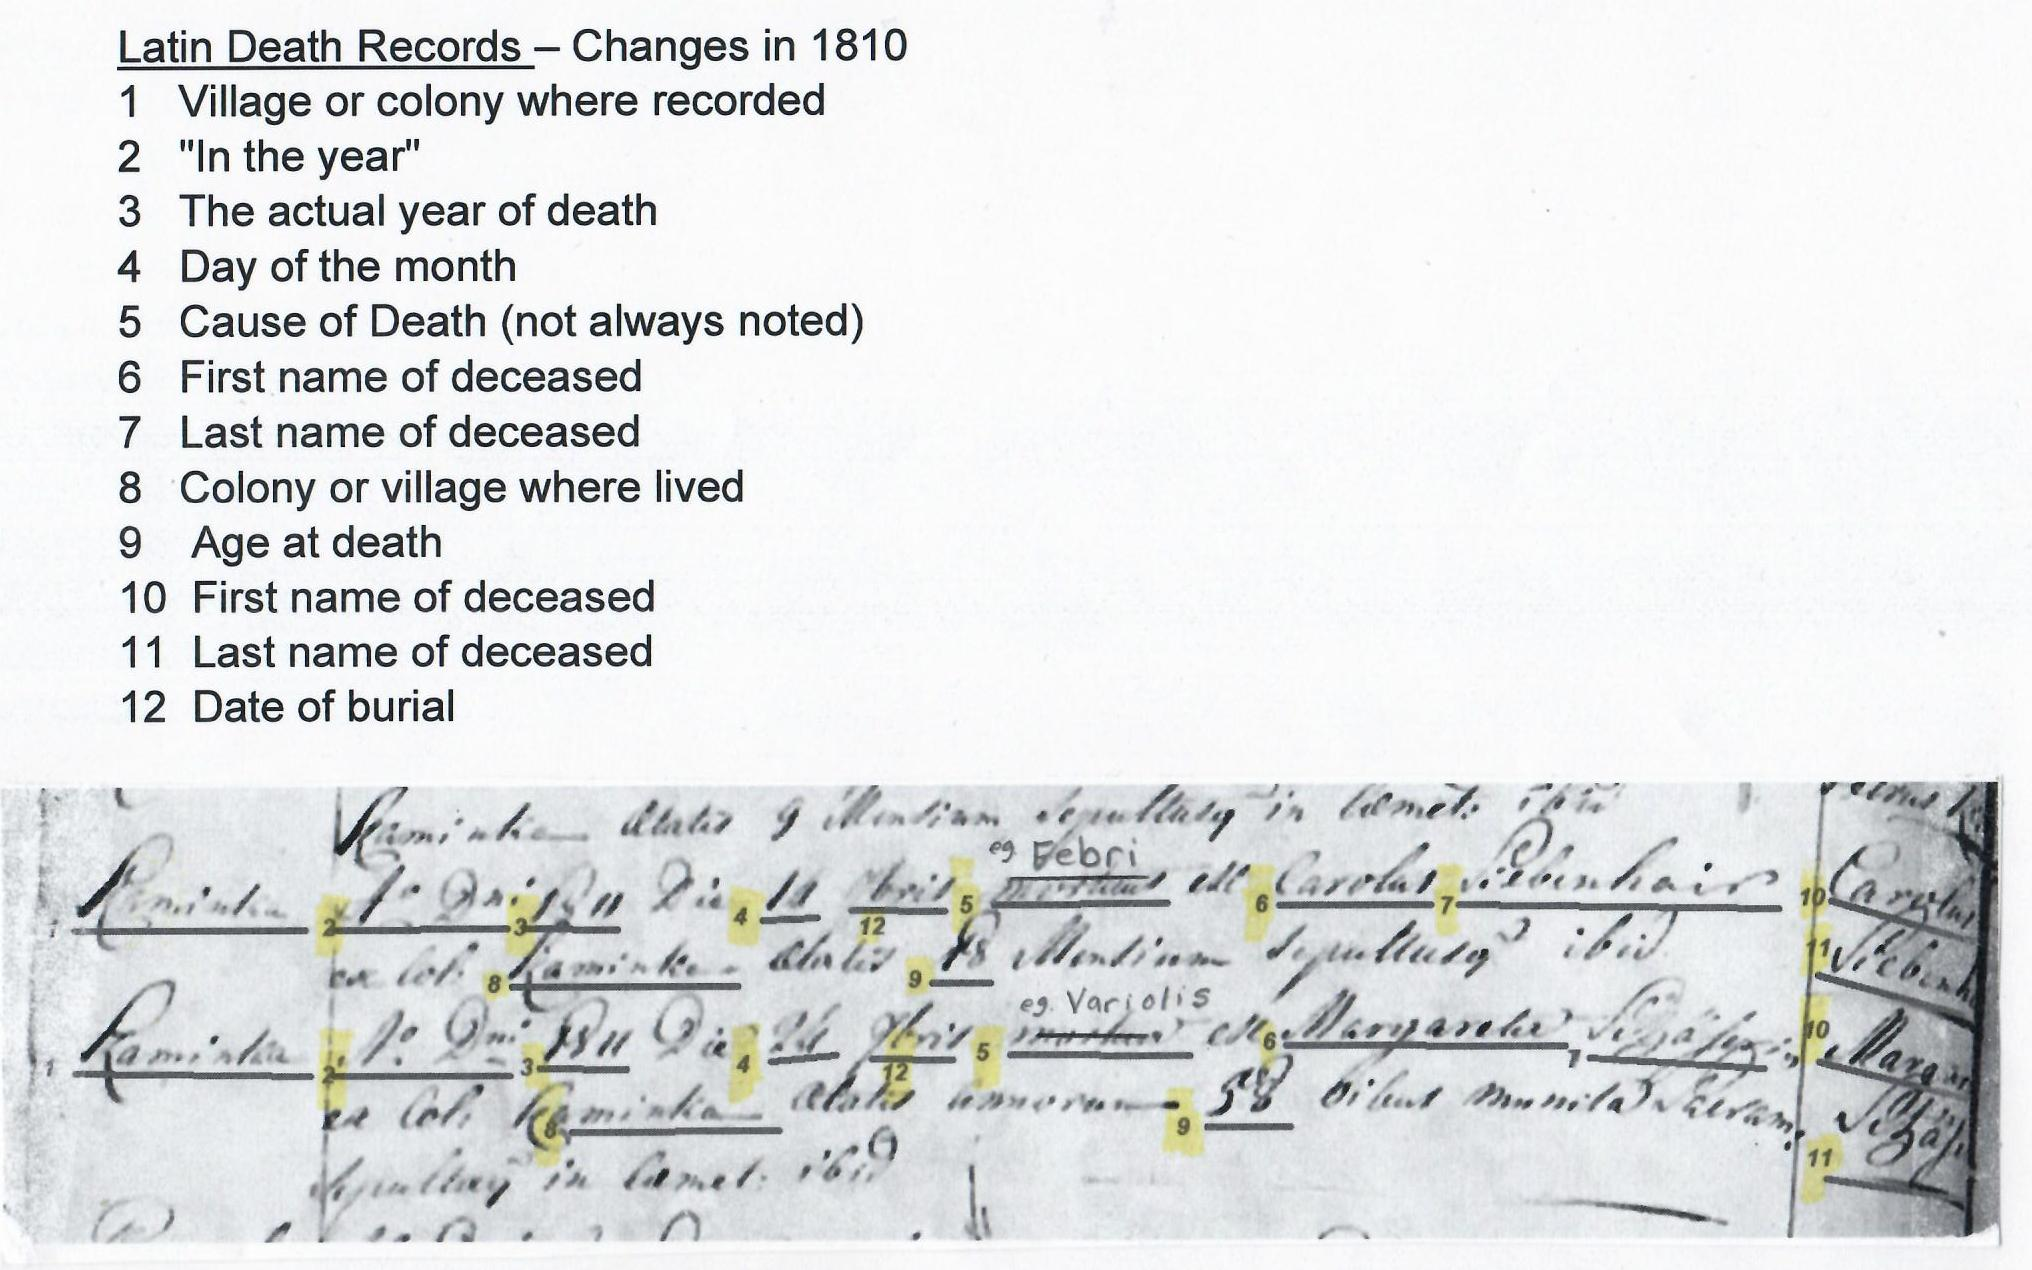 Latin Death Records – Changes in 1810
1 Village or colony where recorded
2 "In the year"
3 The actual year of death
4 Day of the month
5 Cause of Death (not always noted)
6 First name of deceased
7 Last name of deceased
8 Colony or village where lived
9 Age at death
10 First name of deceased
11 Last name of deceased
12 Date of burial
Kaminka Ætatis 9 Mensium Sepultusq in Cæmet: ibid
eg. Febri
1 Kaminka 2 Aº Dni 3 1811 Die 4 12 5 mortuus est 6 Carolus 7 Siebenhair 10 Carolus
ex Col. 8 Kaminka Ætatis 9 18 Mensium Sepultusq ibid 11 Siebenh
eg. Variolis
1 Kaminka 2 Aº Dni 3 1811 Die 4 12 5 est 6 Margaretha 7 10 Margar
ex Col. 8 Kaminka Ætatis annorum 9 58 munita Sacram: 11
Sepultaq in Cæmet: ibid